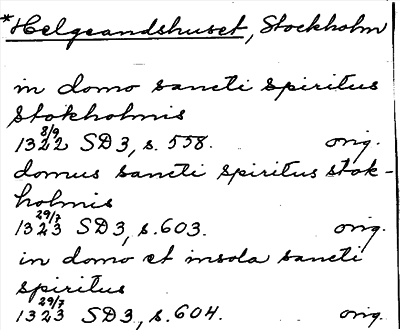 *Helgeandshuset, Stockholm
in domo sancti spiritus
stokholmis
1322 8/9 SD 3, s. 558. orig.
domus sancti spiritus stok-
holmis
1323 29/7 SD 3, s. 603. orig.
in domo et insola sancti
spiritus
1323 29/7 SD 3, s. 604. orig.